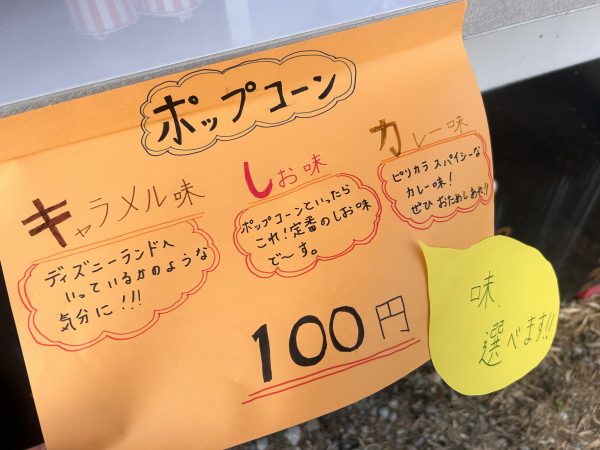 ポップコーン
キャラメル味
ディズニーランドへ
いっているかのような
気分に!!!
しお味
ポップコーンといったら
これ!定番のしお味
で〜す。
カレー味
ピリカラ スパイシーな
カレー味!
ぜひ おためしあれ!!
100円
味、
選べます!!